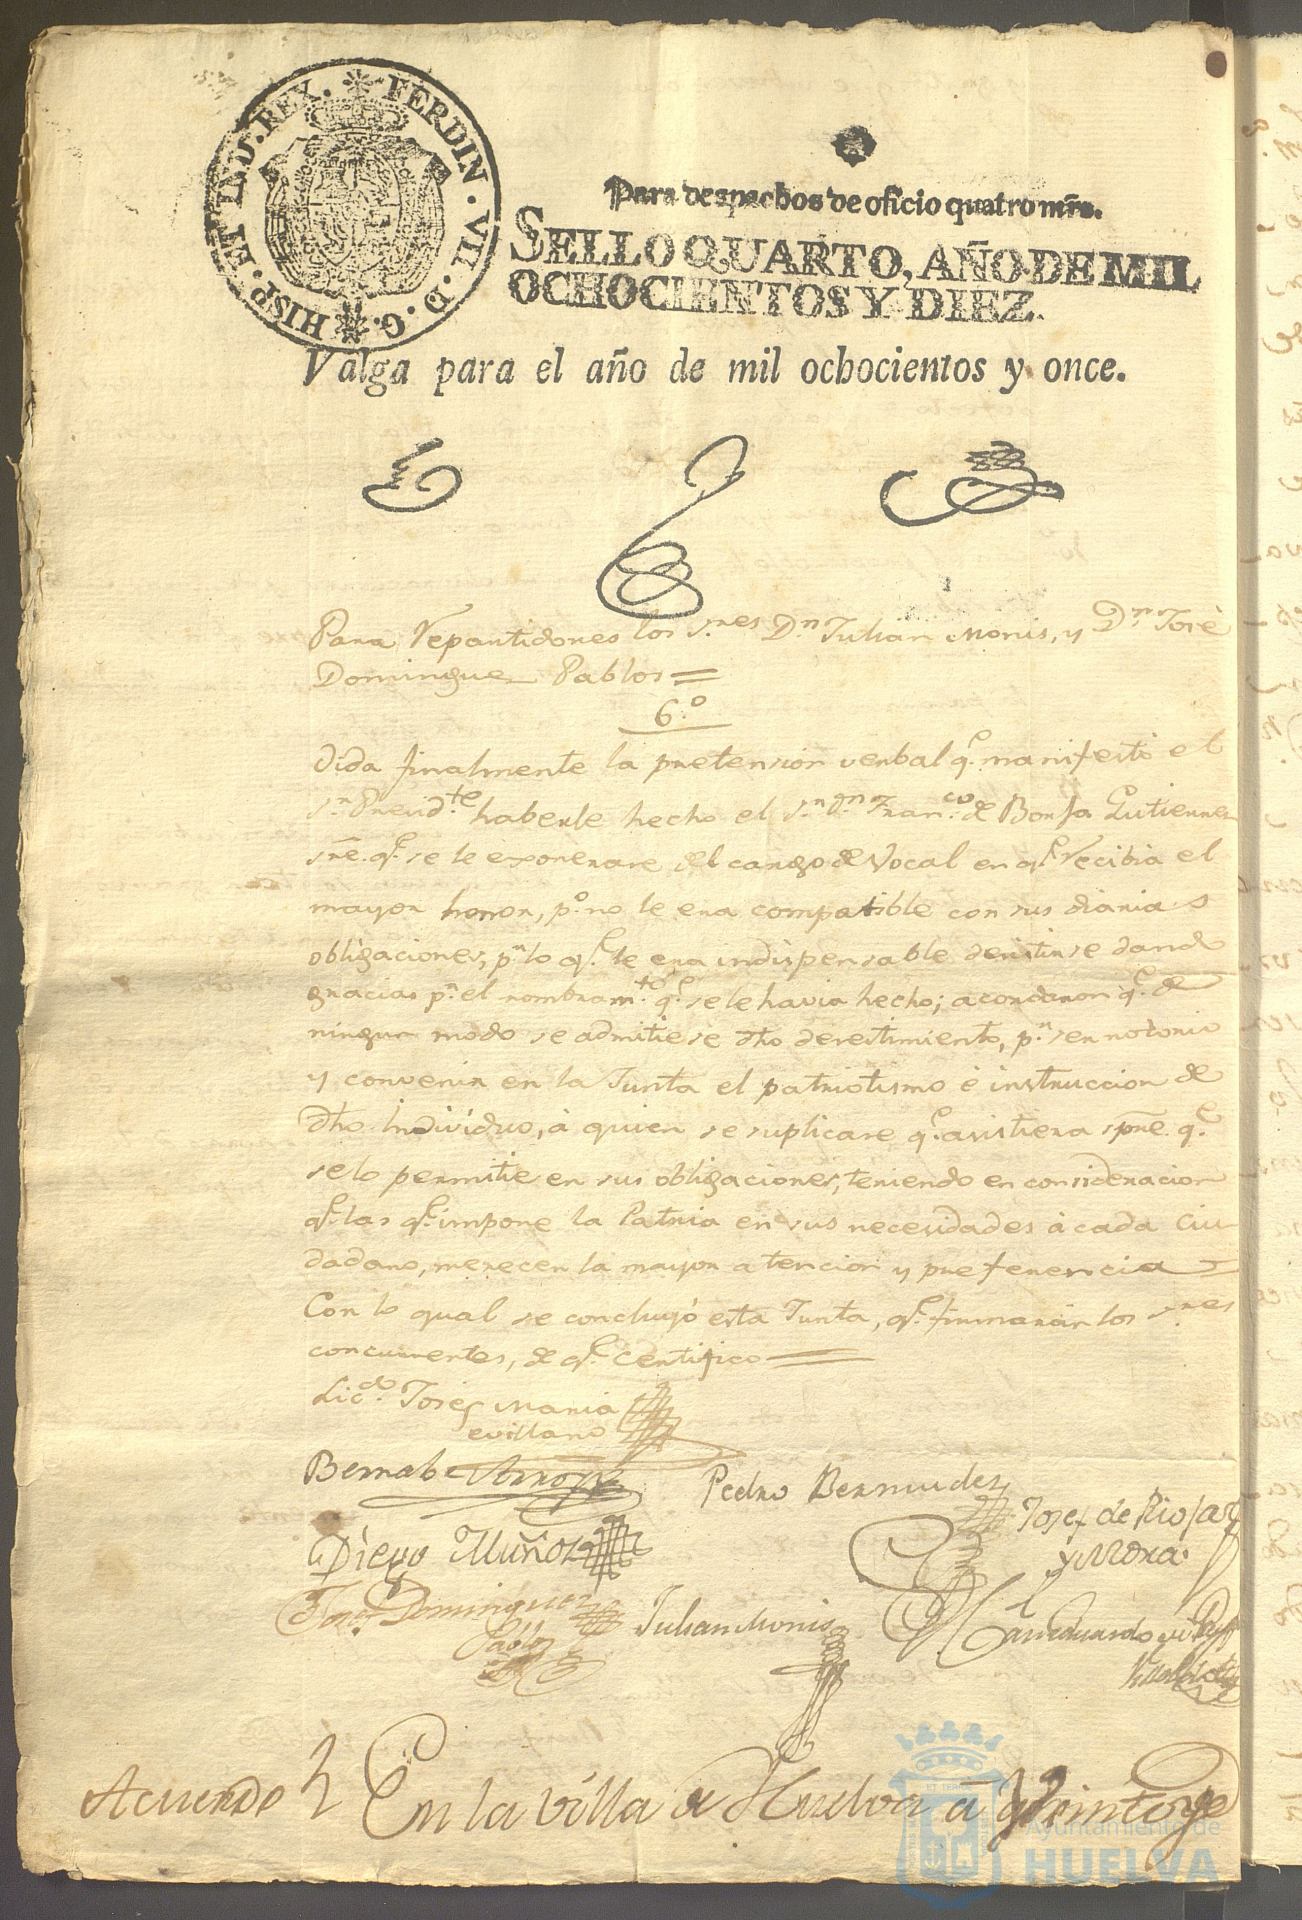 HISP. ET IND. REX. * FERDIN. VII. D. G.
Para despachos de oficio quatro mrs.
SELLO QUARTO, AÑO DE MIL
OCHOCIENTOS Y DIEZ.
Valga para el año de mil ochocientos y once.
Para Repartidores los S.res D.n Julian Monis, y D.n José
Dominguez Pablos =
6.º
Oida finalmente la pretension verbal q.e manifestó el
S.r Presid.te haberle hecho el S.r D.n Fran.co de Borja Gutierrez
sre. q.e se le exonerare del cargo de Vocal en q.e recibia el
mayor honor, p.o no le era compatible con sus diarias
obligaciones, p.r lo q.e le era indispensable desistirse dando
gracias p.r el nombram.to q.e se le havia hecho; acordaron q.e de
ningun modo se admitiese dho desestimiento, p.r ser notorio
y convenir en la Junta el patriotismo é instruccion de
dho individuo, á quien se suplicare q.e asistiera spre. q.e
se lo permitiesen sus obligaciones, teniendo en consideracion
q.e las q.e impone la Patria en sus necesidades á cada ciu
dadano, merecen la mayor atencion y preferencia =
Con lo qual se concluyó esta Junta, q.e firmarán los S.res
concurrentes, de q.e certifico =
Lic.do Josef Maria
Bernabe
Pedro Bermudez
Diego Muñoz
Josef de
y Mora
Josef Dominguez
Pablos
Julian Monis
Eduardo
Acuerdo En la villa de Huelva á
ET TERRÆ
Ayuntamiento de
HUELVA